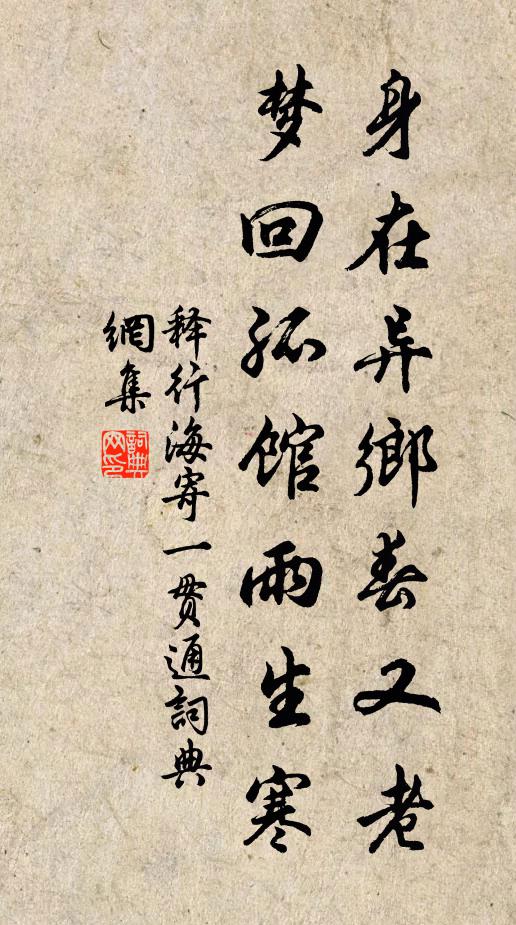 身在异鄉春又老
梦回孤馆雨生寒
释行海寄一贯通詞典
網集
詞典网印